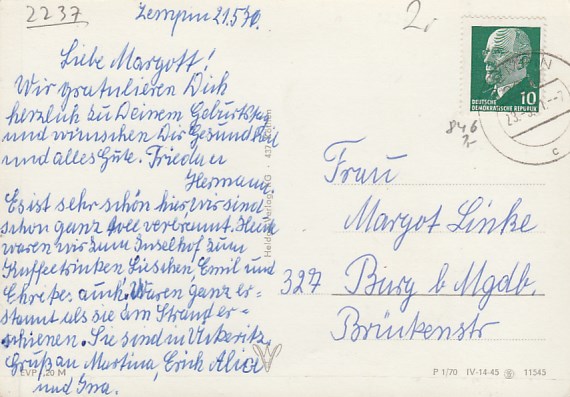 2237
Zempin 21.5.70.
2,-
Liebe Margott!
Wir gratulieren Dich
herzlich zu Deinem Geburtstag
und wünschen Dir Gesundheit
und alles Gute. Frieda u
Hermann
Es ist sehr schön hier, wir sind
schon ganz toll verbrannt. Heute
waren wir zum Inselhof zum
Kaffeetrinken Lieschen, Emil und
auch. Waren ganz er-
staunt als sie am Strand er-
schienen. Sie sind in Ückeritz.
Gruß an Martina, Erich
und Ina.
EVP ,20 M
DEUTSCHE
DEMOKRATISCHE REPUBLIK
10
846
2,-
c
Frau
Margot Linke
327 Burg b Mgdb.
Brückenstr
P 1/70 IV-14-45 11545